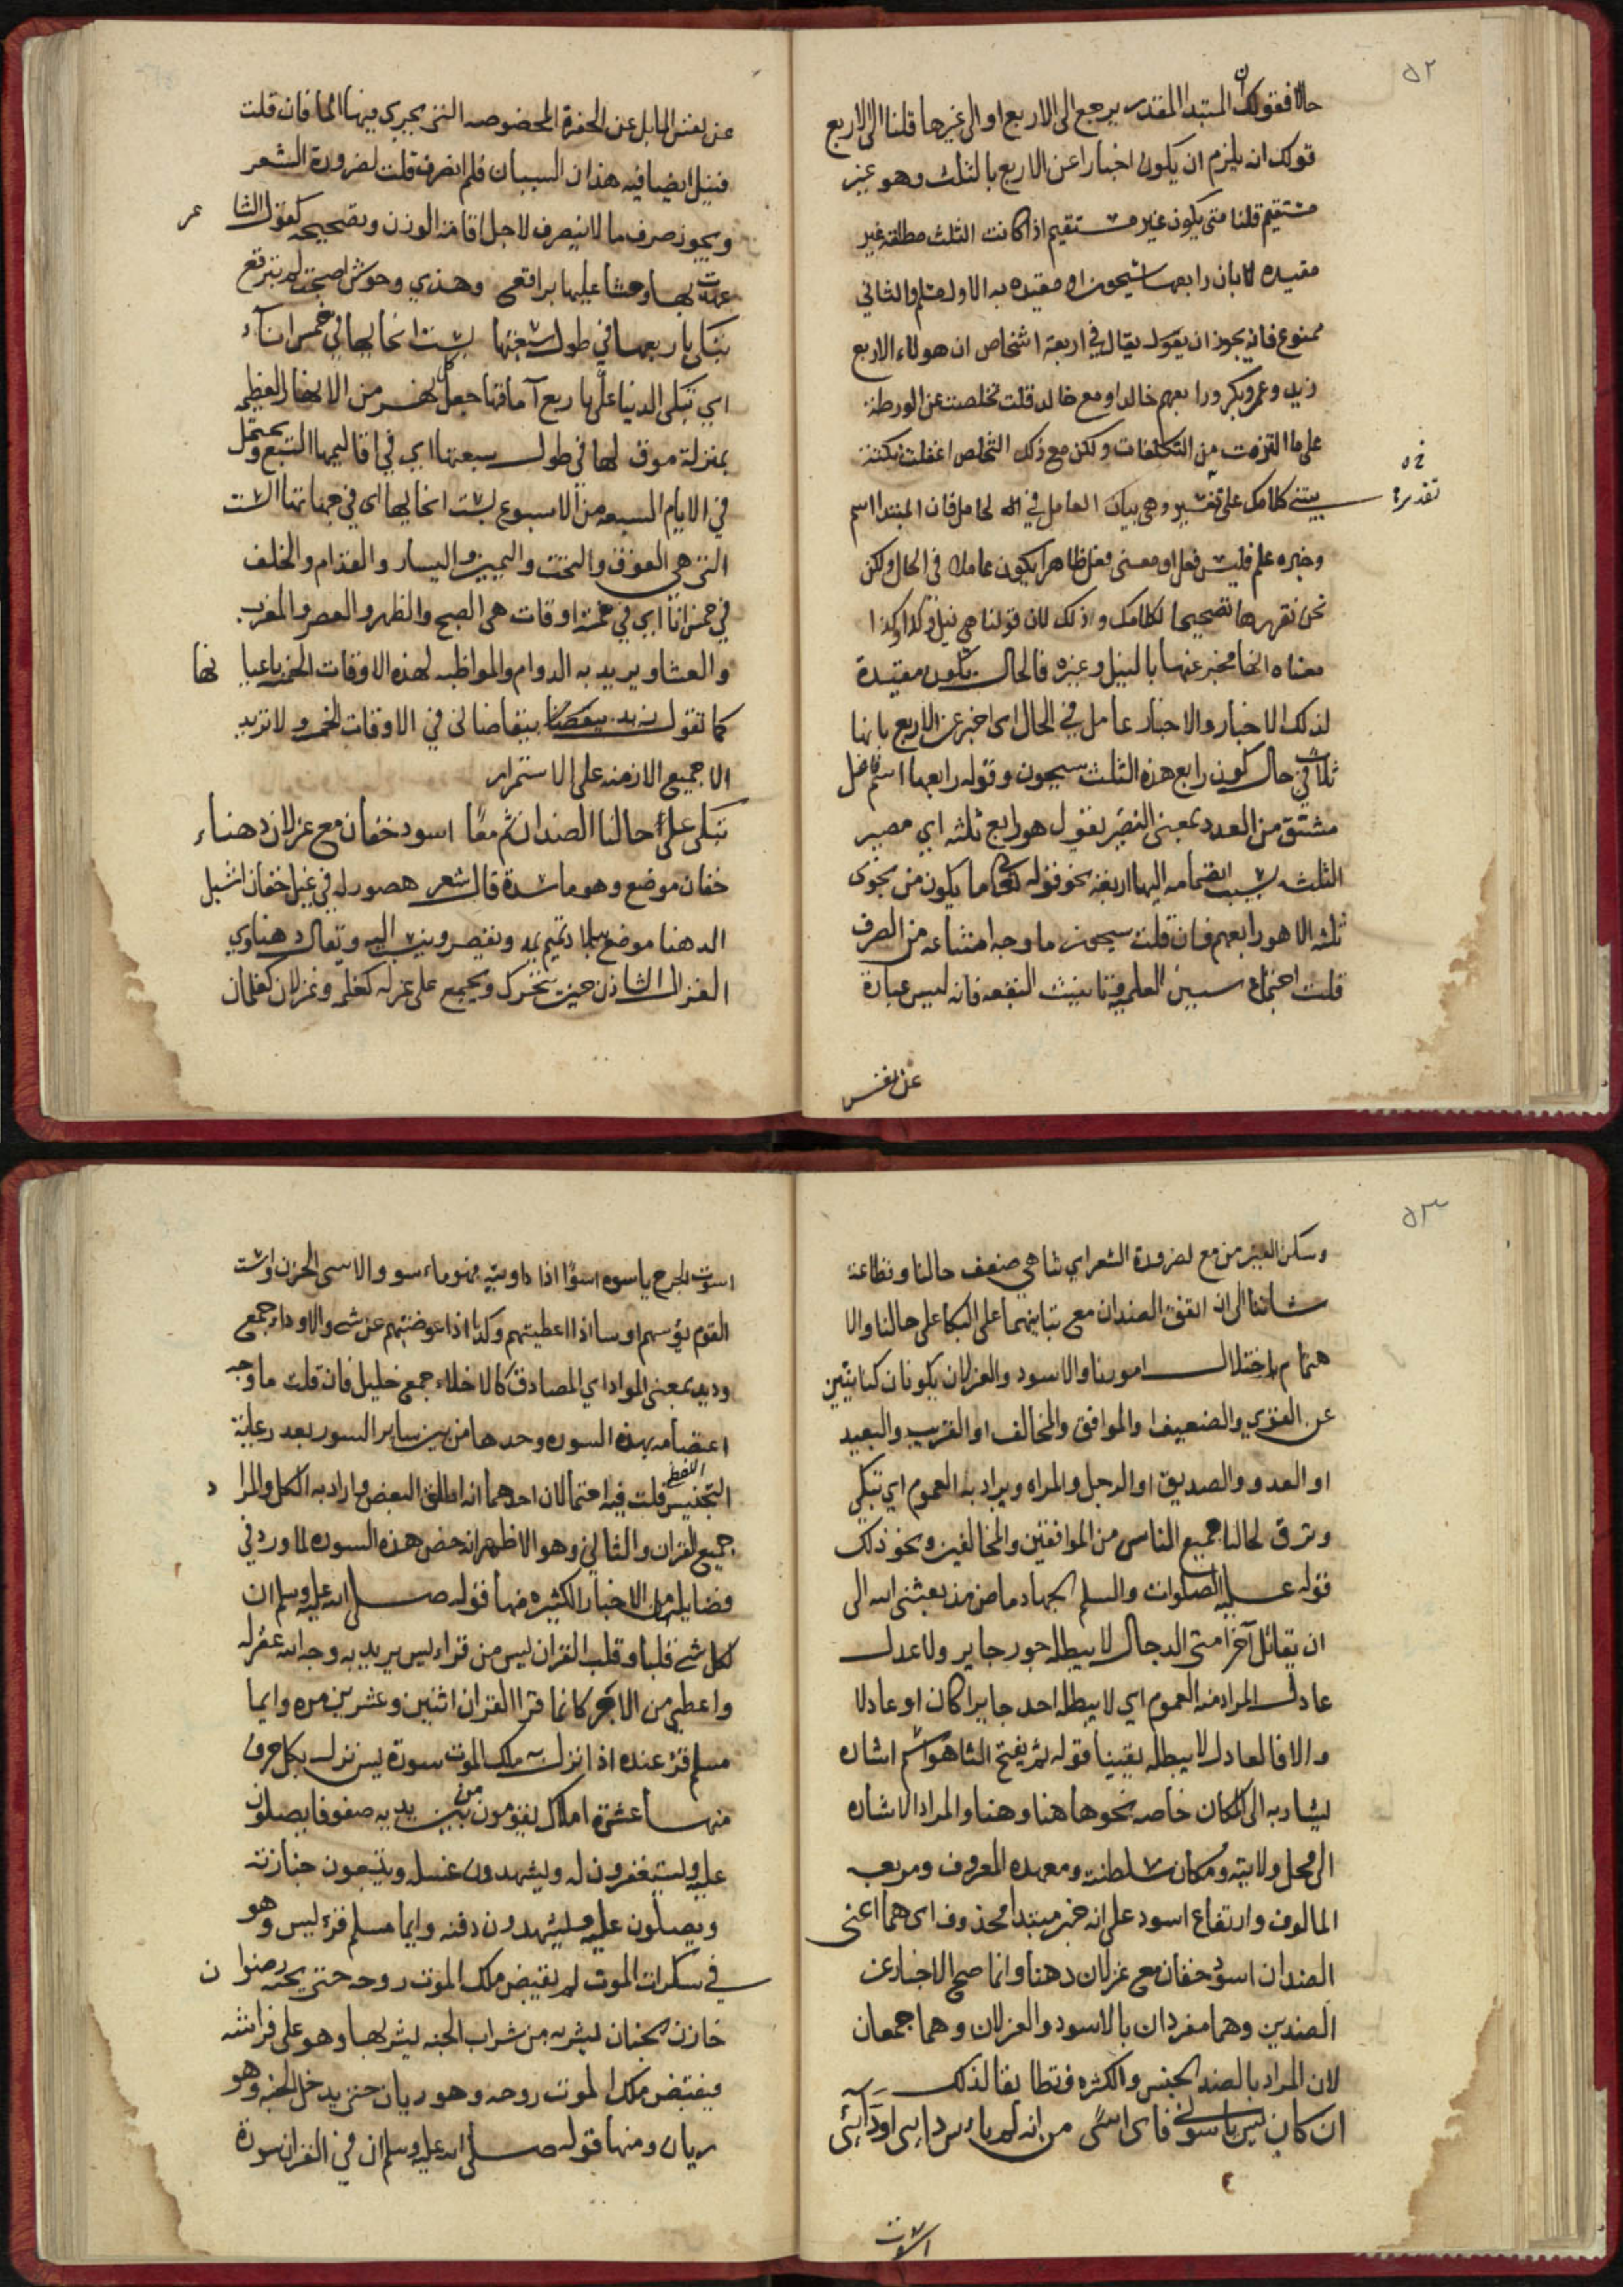 ٥٢
حالا فقولك ان المبتدا المقدر يرجع الى الاربع او الى غيرها قلنا الى الاربع
قولك انه يلزم ان يكون اخبارا عن الاربع بالثلث وهو غير
مستقيم قلنا متى يكون غير مستقيم اذا كانت الثلث مطلقة غير
مقيده لا بان رابعها سيحون او مقيده به الاول مسلم والثاني
ممنوع فانه يجوز ان يقول يقال في اربعة اشخاص ان هولاء الاربع
زيد وعمرو بكر ورابعهم خالد او مع خالد قلت تخلصت عن الورطة
على ما التزمت من التكلفات ولكن مع ذلك التخلص اغفلت نكتة
يبتنى كلامك على تفسير وهي بيان العامل في الحال فان المبتدا اسم
تقديره
وخبره علم فليس فعل او معنى فعل ظاهرا يكون عاملا في الحال ولكن
نحن نقررها تصحيحا لكلامك وذلك لان قولنا هي نيل وكذا وكذا
معناه انها مخبر عنها بالنيل وغيره فالحال يكون مقيدة
لذلك الاخبار والاخبار عامل في الحال اى اخبر عن الاربع بانها
ثلاث في حال كون رابع هذه الثلث سيحون وقوله رابعها اسم فاعل
مشتق من العدد بمعنى التصير نقول هو رابع ثلثه اي مصير
الثلثه بسبب انضمامه اليها اربعة نحو قوله تعالى ما يكون من نجوى
ثلثه الا هو رابعهم فان قلت سيحون ما وجه امتناعه من الصرف
قلت اجتماع سببين العلمية وتانيث البقعه فانه ليس عبارة
عن نفس
عن نفس الماء بل عن الحفرة المخصوصه التي يجري فيها الما فان قلت
فنيل ايضا فيه هذان السببان فلم انصرف قلت لضرورة الشعر
ويجوز صرف ما لا ينصرف لاجل اقامة الوزن وتصحيحه كقول الشاعر
عهدت بها وحشا عليها براقع وهذي وحوش اصبحت لم تبرقع
تبكي باربعها في طول سبعتها لست انحايها في خمس اناء
اي تبكى الدنيا علينا باربع آماقها جعل كل نهر من الانهار العظيمه
بمنزلة موق لها في طول سبعتها اي في اقاليمها السبع ويحتمل
في الايام السبعه من الاسبوع لست انحايها اى في جهاتها الست
التي هي الفوق والتحت واليمين واليسار والقدام والخلف
في خمس انا اي في خمسة اوقات هي الصبح والظهر والعصر والمغرب
والعشا ويريد به الدوام والمواظبه لهذه الاوقات الخمسه باعيانها
كما تقول زيد يتقاضانى في الاوقات الخمسه ولا تريد
الا جميع الازمنه على الاستمرار
تبكي على حالنا الضدان ثم معا اسود خفان مع غزلان دهناء
خفان موضع وهو ماسدة قال شعر هصور له في غيل خفان اشبل
الدهنا موضع ببلاد تميم يمد ويقصر وينسب اليه ويقال دهناوي
الغزال الشادن حين يتحرك ويجمع على غزله كغلمه وغزلان كغلمان
٥٣
وسكن العين من مع لضرورة الشعر اي تناهي ضعف حالنا وفظاعة
شاننا الى ان اتفق الضدان مع تباينهما على البكا على حالنا والا
هتمام باختلال امورنا والاسود والغزلان يكونان كنايتين
عن القوي والضعيف او الموافق والمخالف او القريب والبعيد
او العدو والصديق او الرجل والمراه ويراد به العموم اي تبكي
وترق لحالنا جميع الناس من الموافقين والمخالفين ونحو ذلك
قوله عليه الصلوات والسلم الجهاد ماض منذ بعثنى الله الى
ان يقاتل آخر امتى الدجال لا يبطله جور جاير ولا عدل
عادل المراد منه العموم اي لا يبطله احد جايرا كان او عادلا
والا فالعادل لا يبطله يقينا قوله ثم بفتح الثا هو اسم اشاره
يشار به الى المكان خاصه نحوها هنا وهنا والمراد الاشاره
الى محل ولايته ومكان سلطنته ومعهده المعروف ومربعه
المالوف وارتفاع اسود على انه خبر مبتدا محذوف اى هما اعنى
الضدان اسود خفان مع غزلان دهنا وانما صح الاخبار عن
الضدين وهما مفردان بالاسود والغزلان وهما جمعان
لان المراد بالضد الجنس والكثره فتطابقا لذلك
ان كان يس ياسوني فاى اسًى من انه لم ياس داي اودائى
اسوت
اسوت الجرح ياسوه اسوًا اذا داويته فهو ماسو والاسى الحزن واست
القوم يؤسهم اوسا اذا اعطيتهم وكذا اذا عوضتهم عن شي والاوداء جمع
وديد بمعنى المواد اي المصادق كالاخلاء جمع خليل فان قلت ما وجه
اعتصامه بهذه السوره وحدها من بين ساير السور بعد رعاية
التجنيس اللفظي قلت فيه احتمالان احدهما انه اطلق البعض واراد به الكل والمراد
جميع القران والثاني وهو الاظهر انه خص هذه السوره لما ورد في
فضايلها من الاخبار الكثيره منها قوله صلى الله عليه وسلم ان
لكل شي قلبا وقلب القران يس من قرا يس يريد به وجه الله غفر له
واعطى من الاجر كانما قرا القران اثنين وعشرين مره وايما
مسلم قرئ عنده اذا نزل به ملك الموت سورة يس نزل بكل حرف
منها عشرة املاك يقومون من بين يديه صفوفا يصلون
عليه ويستغفرون له ويشهدون غسله ويتبعون جنازته
ويصلون عليه ويشهدون دفنه وايما مسلم قرء يس وهو
في سكرات الموت لم يقبض ملك الموت روحه حتى يحييه رضوان
خازن الجنان بشربه من شراب الجنه يشربها وهو على فراشه
فيقبض ملك الموت روحه وهو ريان حتى يدخل الجنه وهو
ريان ومنها قوله صلى الله عليه وسلم ان في القران سورة